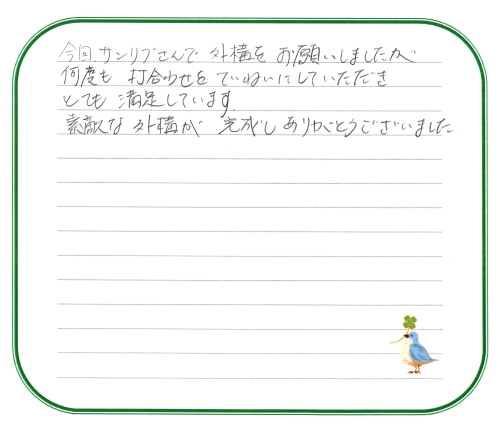 今回、サンリブさんで 外構を お願いしましたが
何度も 打合わせを ていねいにしていただき
とても 満足しています。
素敵な 外構が 完成し ありがとうございました